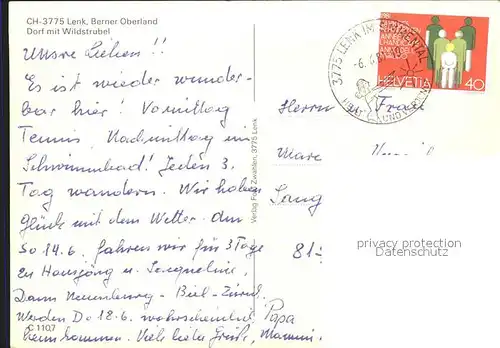 CH-3775 Lenk, Berner Oberland
Dorf mit Wildstrubel
Unsre Lieben!!
Es ist wieder wunder-
bar hier! Vormittag
Tennis, Nachmittag im
Schwimmbad! Jeden 3.
Tag wandern. Wir haben
Glück mit dem Wetter. Am
So 14.6. fahren wir für 3 Tage
zu Hansjörg u. Jacqueline,
Dann Neuenburg - Biel - Zürich.
Werden Do 18.6. wahrscheinlich
heimkommen. Viele liebe Grüße, Mammi,
Papa
C 1107
Verlag Fritz Zwahlen, 3775 Lenk
3775 LENK IM SIMMENTAL
HELVETIA 40
Herrn Frau
81
privacy protection
Datenschutz